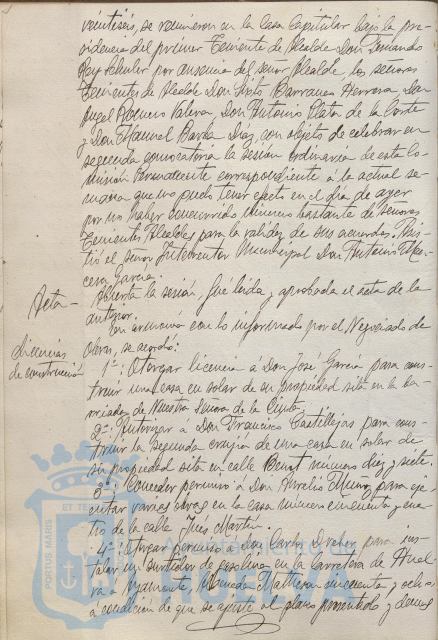 veintiseis, se reunieron en la Casa Capitular bajo la pre-
sidencia del primer Teniente de Alcalde Don Fernando
Rey por ausencia del señor Alcalde, los señores
Tenientes de Alcalde Don Sixto Barranca Herrera, Don
Angel Romero Valera, Don Antonio Plata de la Corte
y Don Manuel Barba Diaz, con objeto de celebrar en
segunda convocatoria la sesión ordinaria de esta Co-
misión Permanente correspondiente á la actual se-
mana que no pudo tener efecto en el día de ayer
por no haber concurrido número bastante de señores
Tenientes Alcaldes para la validez de sus acuerdos. Asis-
tió el señor Interventor Municipal Don Antonio
Garcia.
Acta- Abierta la sesión, fué leida y aprobada el acta de la
anterior.
En armonía con lo informado por el Negociado de
Licencias Obras, se acordó:
de construcción 1º: Otorgar licencia á Don José García para cons-
truir una casa en solar de su propiedad sita en la ba-
rriada de Nuestra Señora de la Cinta.
2º: Autorizar á Don Francisco Castillejos para cons-
truir la segunda crujía de una casa en solar de
su propiedad sita en calle número diez y siete.
3º: Conceder permiso á Don Aurelio Muro para eje-
cutar varias obras en la casa número cincuenta y cua-
tro de la calle Ginés Martín.
4º: Otorgar permiso á Don Carlos para ins-
talar un surtidor de gasolina en la carretera de Huel-
va á Ayamonte, Alameda cincuenta y ocho
á condición de que se ajuste al plano presentado y demás
PORTUS MARIS
ET TE
Ayuntamiento de
HUELVA